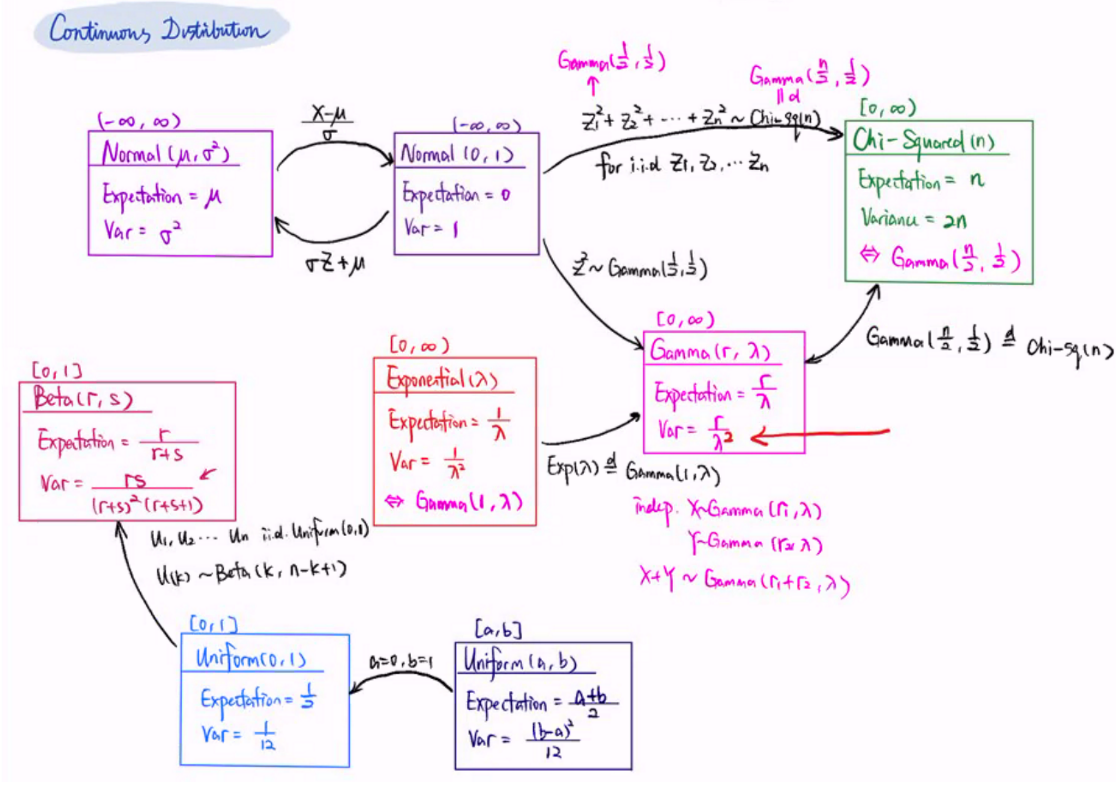 Continuous Distribution
(-∞, ∞)
Normal (μ, σ²)
Expectation = μ
Var = σ²
X-μ
σ
σZ+μ
(-∞, ∞)
Normal (0, 1)
Expectation = 0
Var = 1
Gamma(1/2, 1/2)
↑
Gamma(n/2, 1/2)
|| d
Z₁² + Z₂² + ··· + Zn² ~ Chi-sq(n)
for i.i.d Z₁, Z₂, ··· Zn
[0, ∞)
Chi-Squared (n)
Expectation = n
Variance = 2n
⇔ Gamma(n/2, 1/2)
Z² ~ Gamma(1/2, 1/2)
Gamma(n/2, 1/2) d= Chi-sq(n)
[0, ∞)
Gamma (r, λ)
Expectation = r/λ
Var = r/λ²
[0, ∞)
Exponential (λ)
Expectation = 1/λ
Var = 1/λ²
⇔ Gamma (1, λ)
Exp(λ) d= Gamma (1, λ)
indep. X~Gamma (r₁, λ)
Y~Gamma (r₂, λ)
X+Y ~ Gamma (r₁+r₂, λ)
[0, 1]
Beta (r, s)
Expectation = r/(r+s)
Var = rs/((r+s)² (r+s+1))
U₁, U₂ ··· Un i.i.d. Uniform (0,1)
U(k) ~ Beta (k, n-k+1)
[0, 1]
Uniform (0, 1)
Expectation = 1/2
Var = 1/12
a=0, b=1
[a, b]
Uniform (a, b)
Expectation = a+b/2
Var = (b-a)²/12